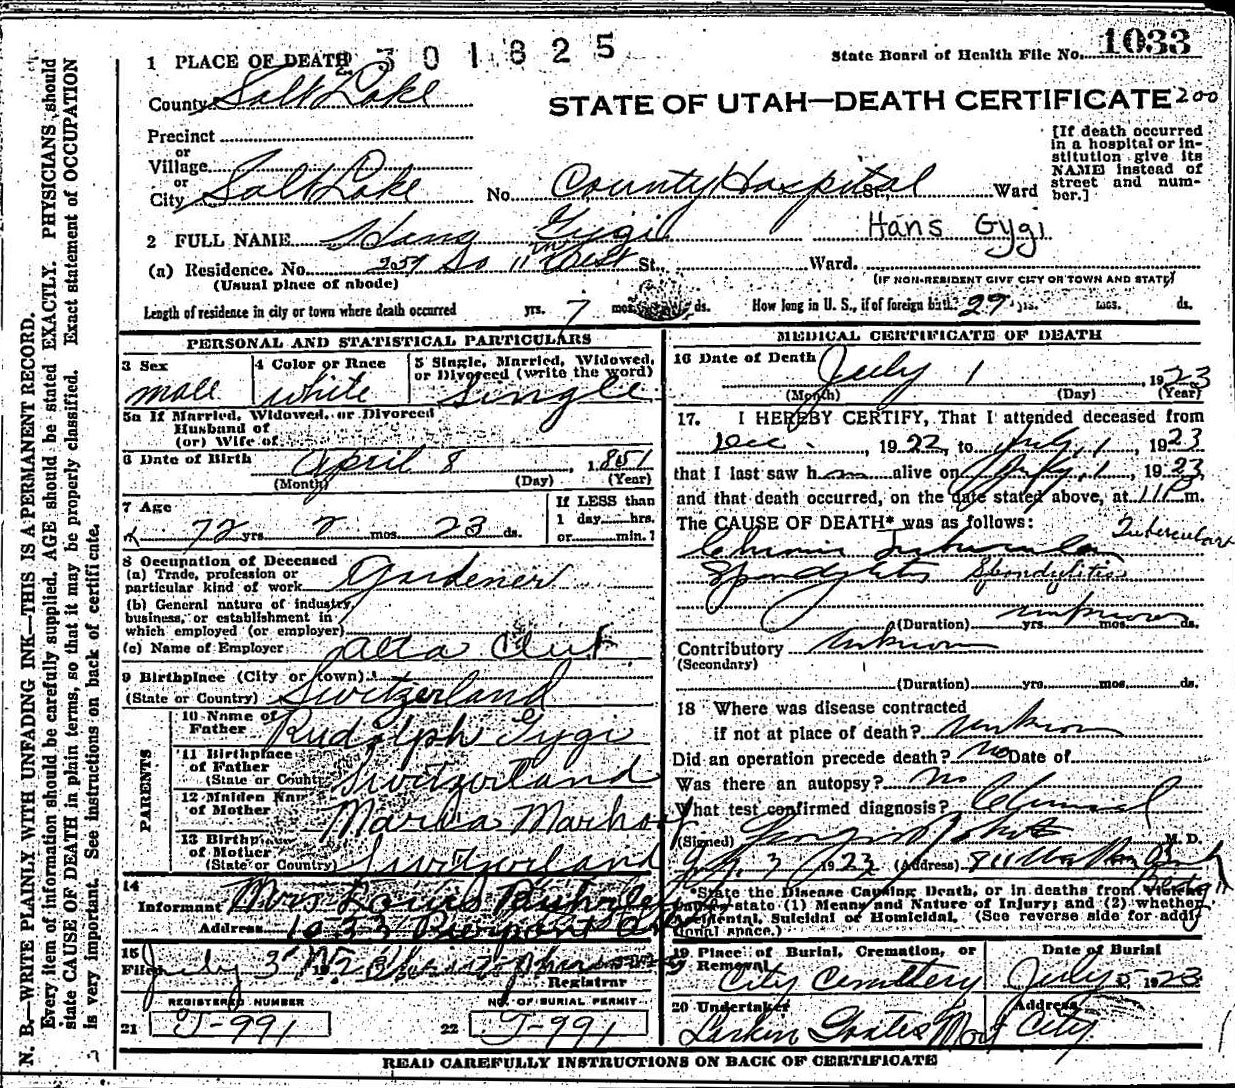 2301825
State Board of Health File No. 1033
1 PLACE OF DEATH
County Salt Lake
STATE OF UTAH—DEATH CERTIFICATE 200
Precinct
or
Village
or
City Salt Lake No. County Hospital St., Ward
[If death occurred
in a hospital or in-
stitution give its
NAME instead of
street and num-
ber.]
2 FULL NAME Hans Gygi Hans Gygi
(a) Residence. No. So 11th West St., Ward.
(Usual place of abode)
(IF NON-RESIDENT GIVE CITY OR TOWN AND STATE)
Length of residence in city or town where death occurred yrs. 7 mos. ds. How long in U. S., if of foreign birth? 29 yrs. mos. ds.
PERSONAL AND STATISTICAL PARTICULARS
3 Sex
male
4 Color or Race
white
5 Single, Married, Widowed,
or Divorced (write the word)
Single
5a If Married, Widowed, or Divorced
Husband of
(or) Wife of
6 Date of Birth April 8, 1851
(Month) (Day) (Year)
7 Age
72 yrs. 2 mos. 23 ds.
If LESS than
1 day hrs.
or min.?
8 Occupation of Deceased
(a) Trade, profession or
particular kind of work Gardener
(b) General nature of industry,
business, or establishment in
which employed (or employer)
(c) Name of Employer Alta Club
9 Birthplace (City or town)
(State or Country) Switzerland
PARENTS
10 Name of
Father Rudolph Gygi
11 Birthplace
of Father
(State or Country) Switzerland
12 Maiden Name
of Mother Maria Marhof
13 Birthplace
of Mother
(State or Country) Switzerland
14
Informant Mrs Louis Buhrley
Address 1033 Pierpont
15
Filed July 3
Registrar
REGISTERED NUMBER
21 J-991
NO. OF BURIAL PERMIT
22 J-991
MEDICAL CERTIFICATE OF DEATH
16 Date of Death July 1, 1923
(Month) (Day) (Year)
17. I HEREBY CERTIFY, That I attended deceased from
Dec., 1922, to July 1, 1923
that I last saw h im alive on July 1, 1923
and that death occurred, on the date stated above, at 11 P m.
The CAUSE OF DEATH* was as follows:
Tubercular
Chronic Tubercular
Spondylitis Spondylitis
unknown
(Duration) yrs. mos. ds.
Contributory unknown
(Secondary)
(Duration) yrs. mos. ds.
18 Where was disease contracted
if not at place of death? unknown
Did an operation precede death? no Date of
Was there an autopsy? no
What test confirmed diagnosis? Clinical
(Signed) M. D.
July 3 1923 (Address)
*State the Disease Causing Death, or in deaths from Violent
Causes state (1) Means and Nature of Injury; and (2) whether
Accidental, Suicidal or Homicidal. (See reverse side for addi-
tional space.)
19 Place of Burial, Cremation, or
Removal
City Cemetery
Date of Burial
July 5 1923
20 Undertaker
Address
City
READ CAREFULLY INSTRUCTIONS ON BACK OF CERTIFICATE
N. B.—WRITE PLAINLY WITH UNFADING INK—THIS IS A PERMANENT RECORD.
Every item of information should be carefully supplied. AGE should be stated EXACTLY. PHYSICIANS should
state CAUSE OF DEATH in plain terms, so that it may be properly classified. Exact statement of OCCUPATION
is very important. See instructions on back of certificate.